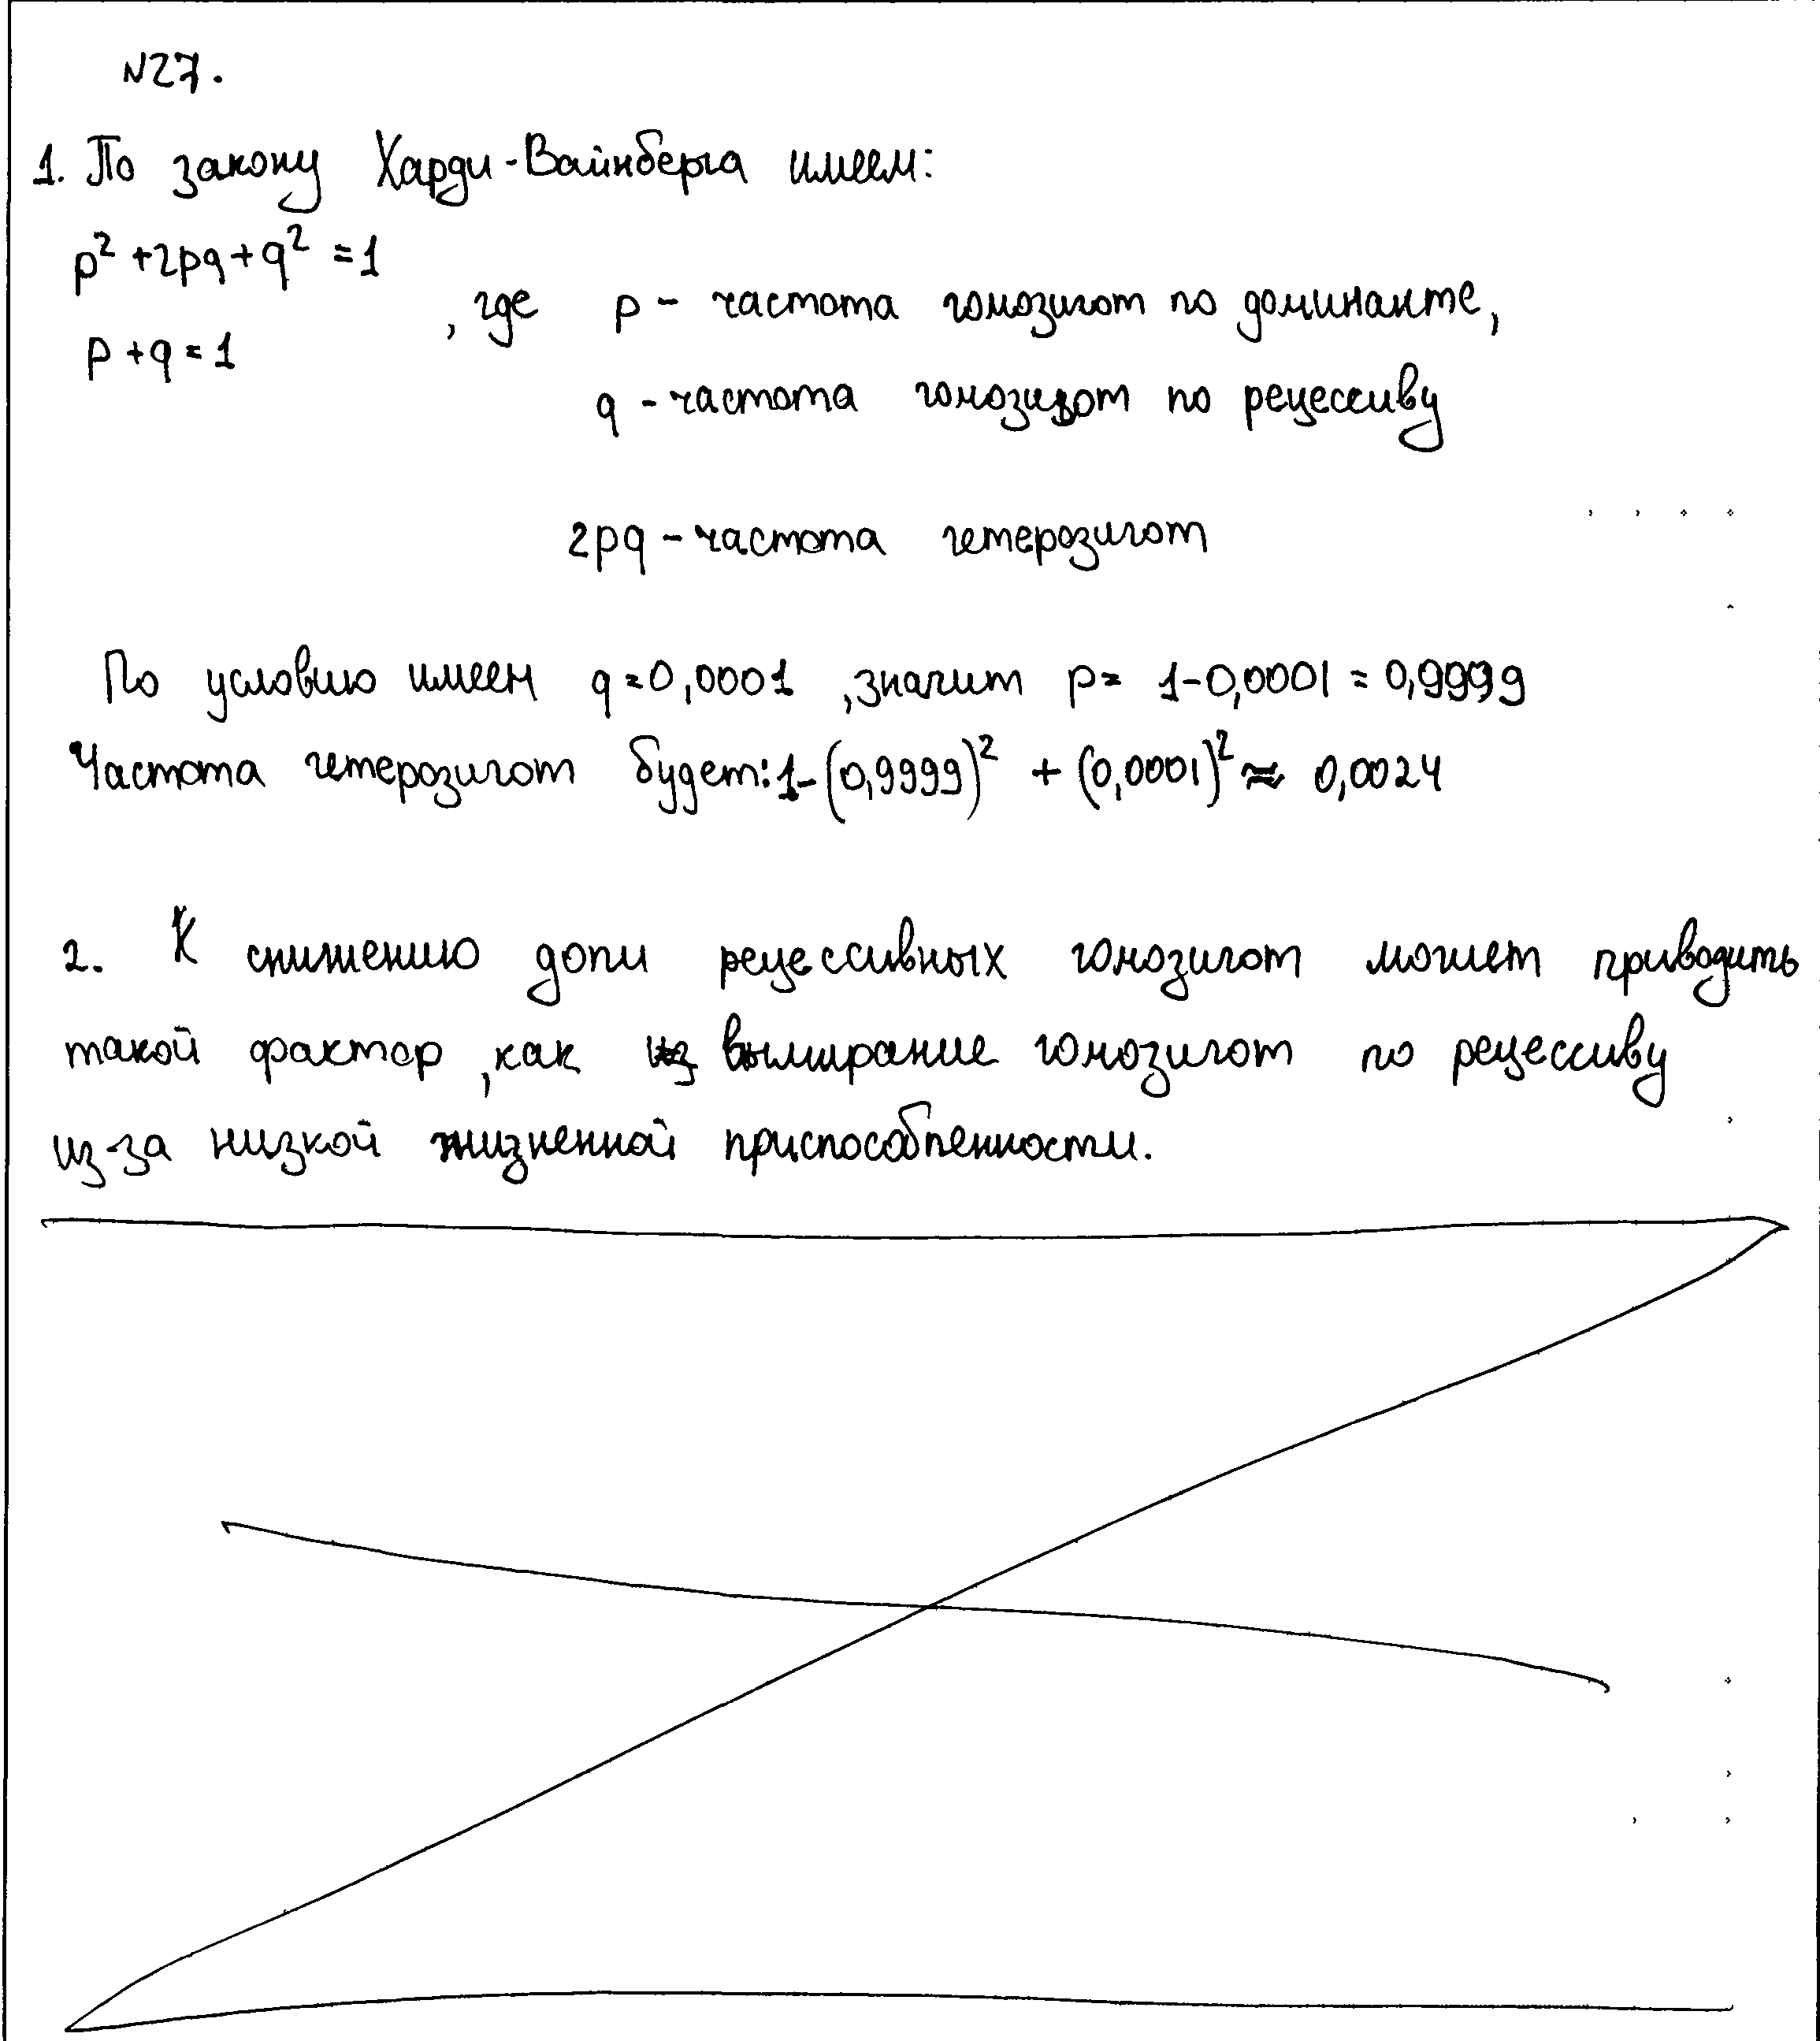 N27.
1. По закону Харди-Вайнберга имеем:
p² + 2pq + q² = 1
p + q = 1
, где p - частота гомозигот по доминанте,
q - частота гомозигот по рецессиву
2pq - частота гетерозигот
По условию имеем q = 0,0001, значит p = 1-0,0001 = 0,9999
Частота гетерозигот будет: 1-(0,9999)² + (0,0001)² ≈ 0,0024
2. К снижению доли рецессивных гомозигот может приводить
такой фактор, как вымирание гомозигот по рецессиву
из-за низкой жизненной приспособленности.